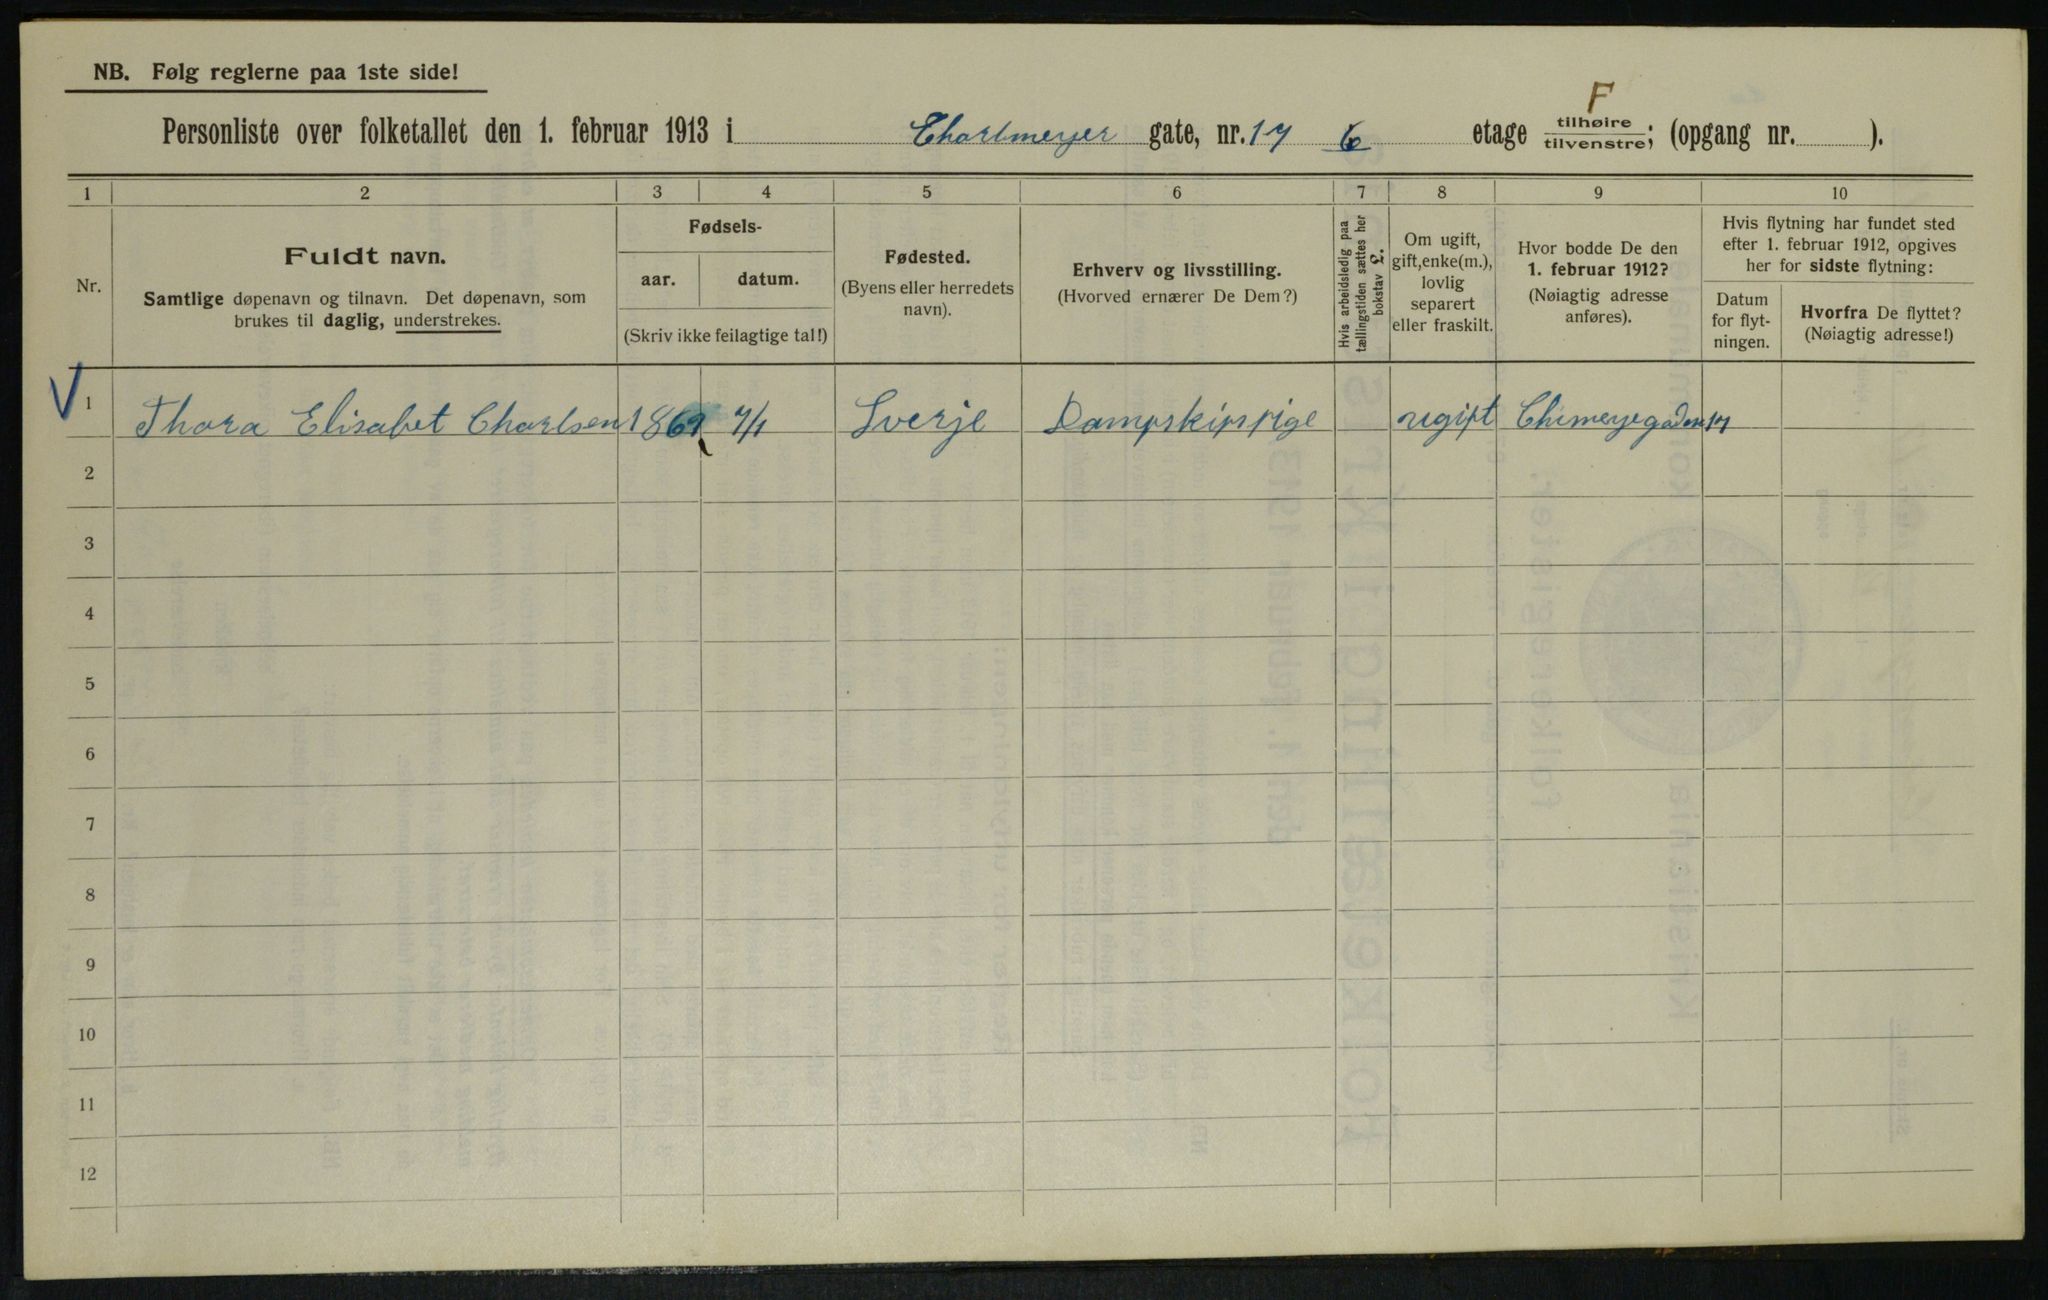 NB. Følg reglerne paa 1ste side!
Personliste over folketallet den 1. februar 1913 i Charlmeyer gate, nr. 17 6 etage tilhøire/tilvenstre; (opgang nr. ).
F
1 2 3 4 5 6 7 8 9 10
Nr.
Fuldt navn.
Samtlige døpenavn og tilnavn. Det døpenavn, som
brukes til daglig, understrekes.
Fødsels-
aar. datum.
(Skriv ikke feilagtige tal!)
Fødested.
(Byens eller herredets
navn).
Erhverv og livsstilling.
(Hvorved ernærer De Dem?)
Hvis arbeidsledig paa
tællingstiden sættes her
bokstav L.
Om ugift,
gift, enke(m.),
lovlig
separert
eller fraskilt.
Hvor bodde De den
1. februar 1912?
(Nøiagtig adresse
anføres).
Hvis flytning har fundet sted
efter 1. februar 1912, opgives
her for sidste flytning:
Datum
for flyt-
ningen.
Hvorfra De flyttet?
(Nøiagtig adresse!)
1 Thora Elisabet Charlsen 1869 7/1 Sverje Dampskipspige ugift Chmeyegaden 17
2
3
4
5
6
7
8
9
10
11
12